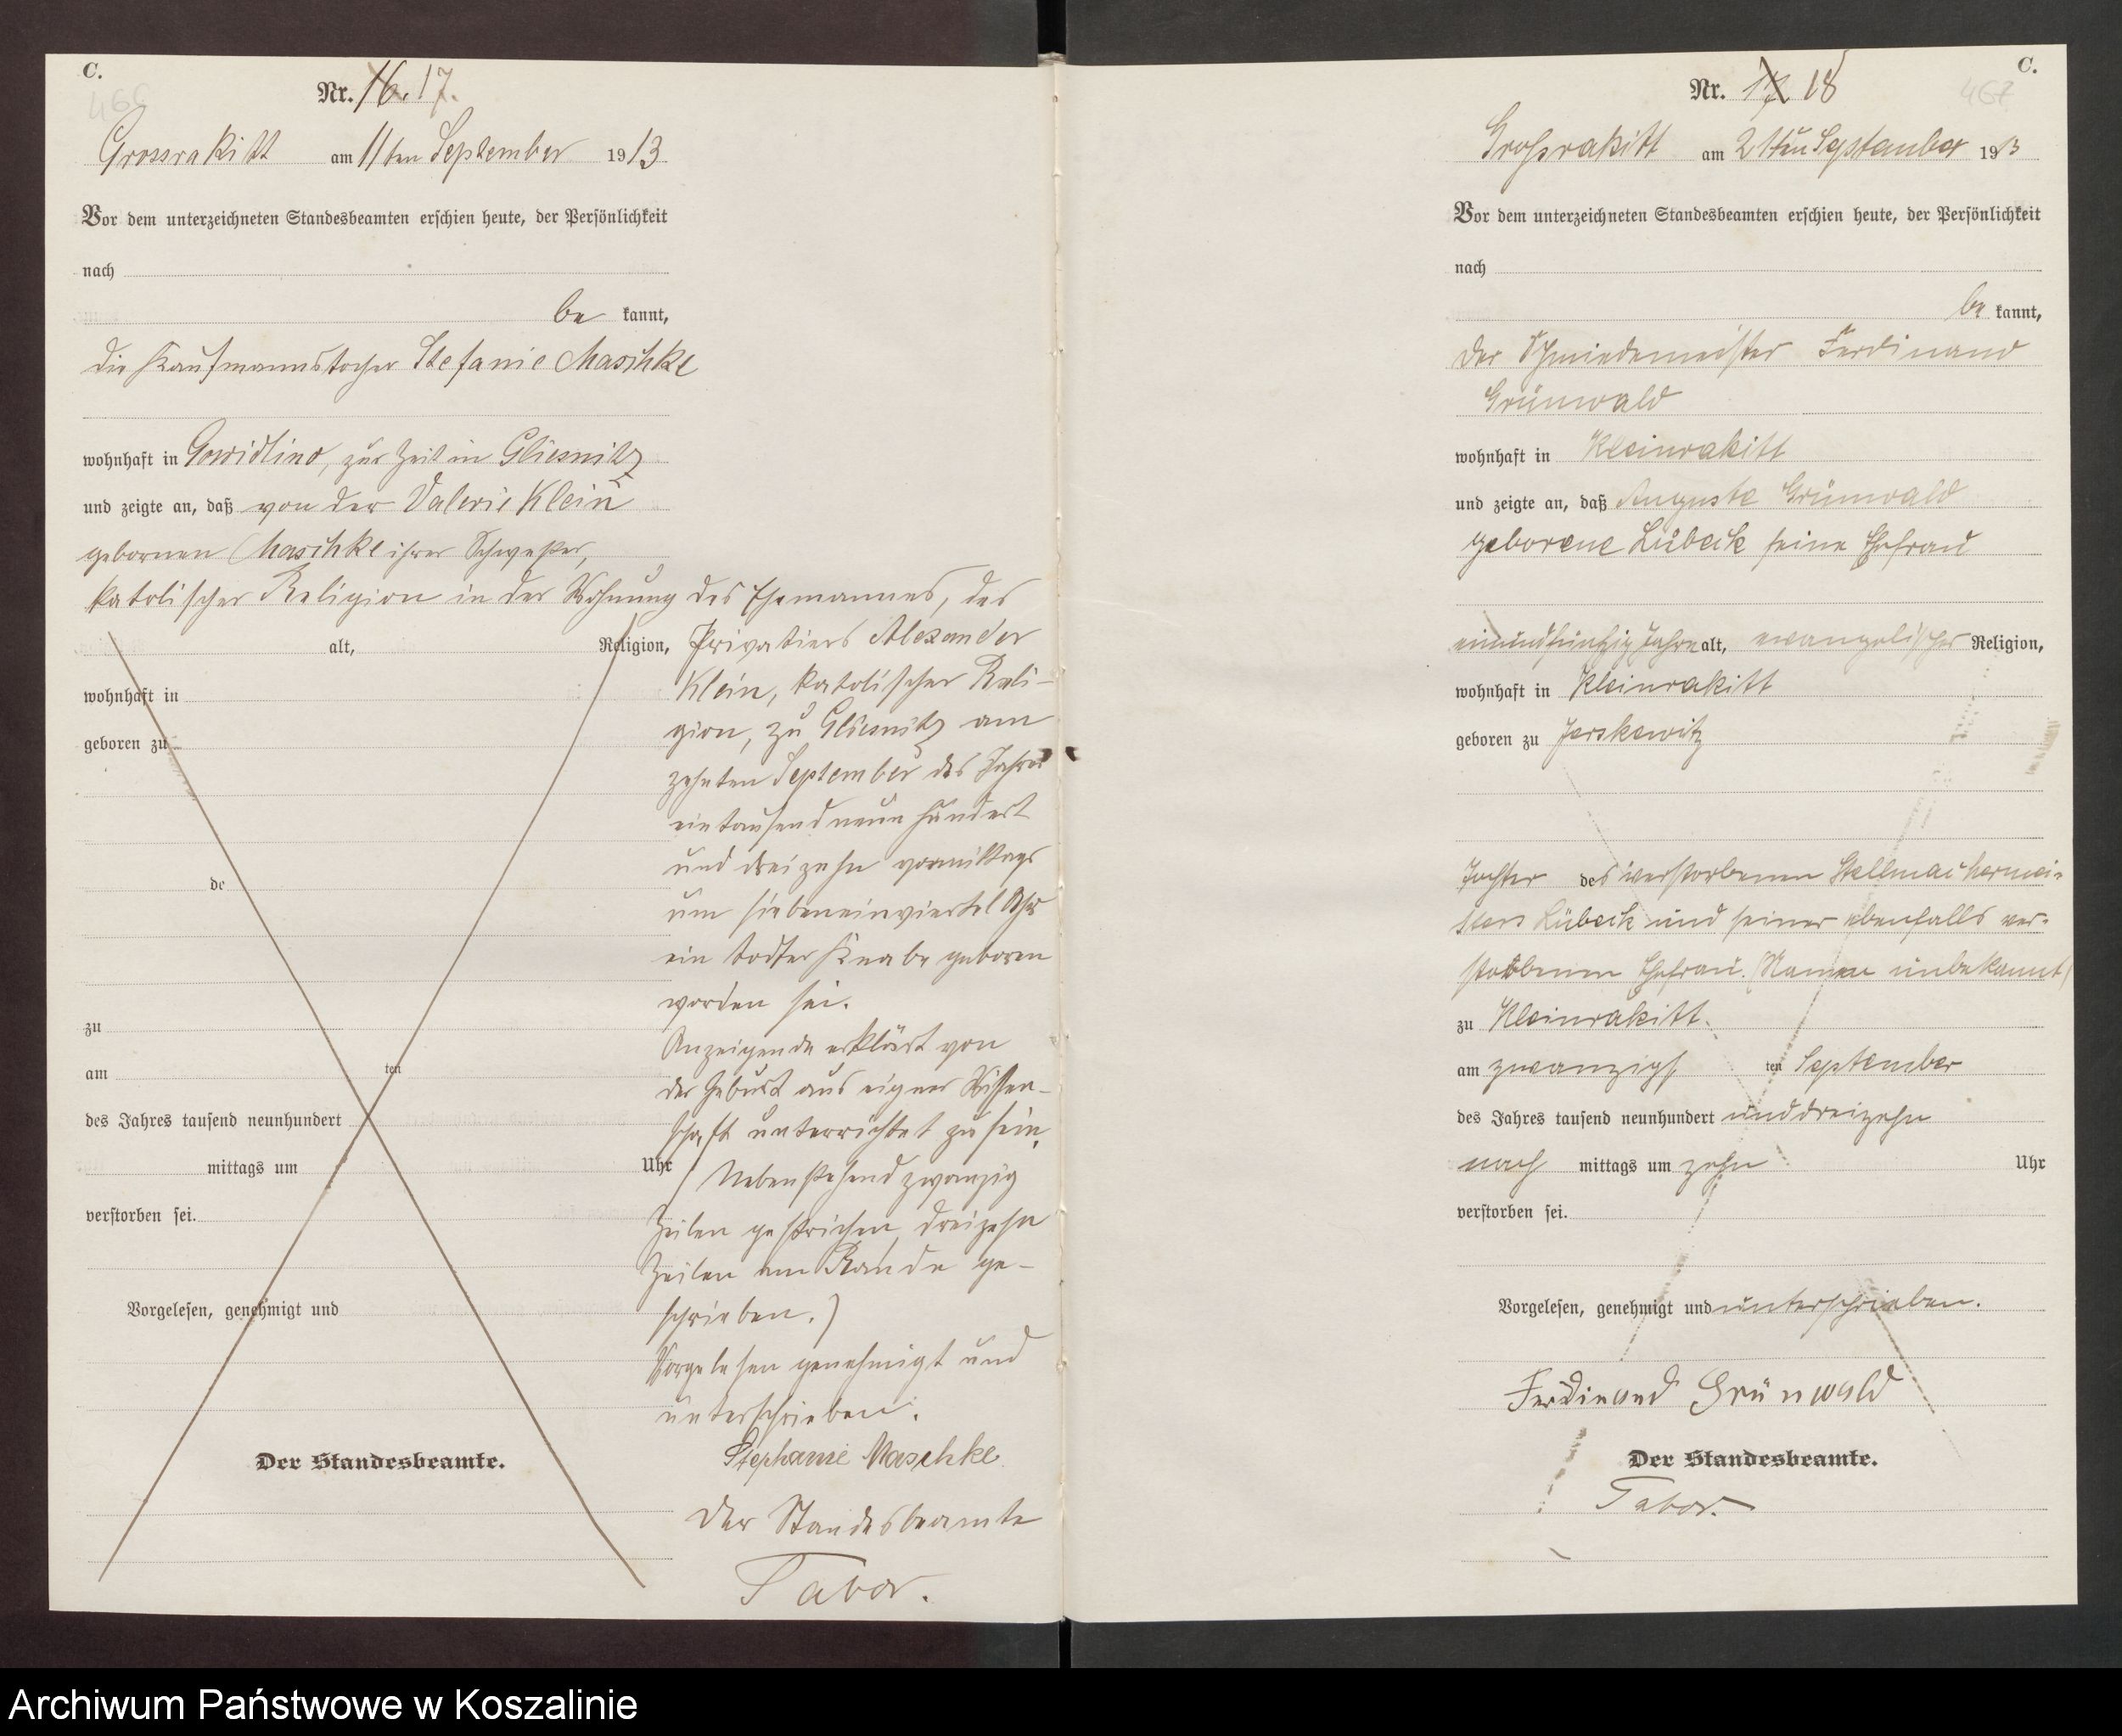 C.
466
Nr. 16. 17.
Grossrakitt am 11ten September 1913
Vor dem unterzeichneten Standesbeamten erschien heute, der Persönlichkeit
nach
be kannt,
die Kaufmannstochter Stefanie Maschke
wohnhaft in Gowidlino, zur Zeit in Gliesnitz
und zeigte an, daß von der Valerie Klein
gebornen Maschke ihrer Schwester,
katolischer Religion in der Wohnung des Ehemannes, des
alt, Religion,
wohnhaft in
geboren zu
de
zu
am ten
des Jahres tausend neunhundert
mittags um Uhr
verstorben sei.
Vorgelesen, genehmigt und
Der Standesbeamte.
Privatiers Alexander
Klein, katolischer Reli-
gion, zu Gliesnitz am
zehnten September des Jahres
eintausend neun hundert
und dreizehn vormittags
um siebeneinviertel Uhr
ein todter Knabe geboren
worden sei.
Anzeigende erklärt von
der Geburt aus eigner Wissen-
schaft unterrichtet zu sein.
/ Nebenstehend zwanzig
Zeilen gestrichen, dreizehn
Zeilen am Rande ge-
schrieben.)
Vorgelesen genehmigt und
unterschrieben.
Stephanie Maschke.
Der Standesbeamte
Tabor.
C.
467
Nr. 17 18
Großrakitt am 21ten September 1913
Vor dem unterzeichneten Standesbeamten erschien heute, der Persönlichkeit
nach
be kannt,
der Schmiedemeister Ferdinand
Grünwald
wohnhaft in Kleinrakitt
und zeigte an, daß Auguste Grünwald
geborene Lübeck seine Ehefrau
einundfünfzig Jahre alt, evangelischer Religion,
wohnhaft in Kleinrakitt
geboren zu Jerskewitz
Tochter des verstorbenen Stellmachermei-
sters Lübeck und seiner ebenfalls ver-
storbenen Ehefrau. (Name unbekannt)
zu Kleinrakitt.
am zwanzigs ten September
des Jahres tausend neunhundert unddreizehn
nach mittags um zehn Uhr
verstorben sei.
Vorgelesen, genehmigt und unterschrieben.
Ferdinand Grünwald
Der Standesbeamte.
Tabor.
Archiwum Państwowe w Koszalinie